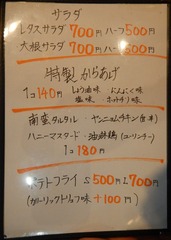 サラダ
レタスサラダ 700円 ハーフ500円
大根サラダ 700円 ハーフ500円
特製 からあげ
1コ140円 しょうゆ味 ・ にんにく味
塩味 ・ ホットチリ味
南蛮タルタル ・ ヤンニョムチキン(旨辛)
ハニーマスタード ・ 油淋鶏(ユーリンチー)
1コ 180円
ポテトフライ S 500円 L 700円
(ガーリックトリュフ味 +100円)